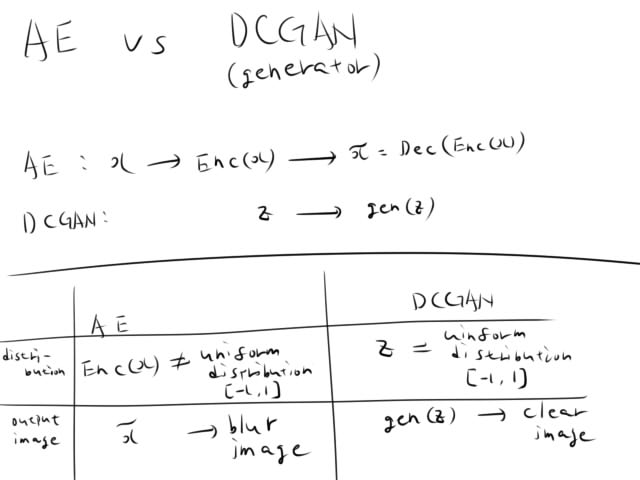 AE vs DCGAN
(generator)
AE : x → Enc(x) → x̃ = Dec(Enc(x))
DCGAN: z → gen(z)
AE DCGAN
discri-
bution
Enc(x) ≠ uniform
distribution
[-1,1]
z = uinform
distribution
[-1,1]
output
image
x̃ → blur
image
gen(z) → clear
image